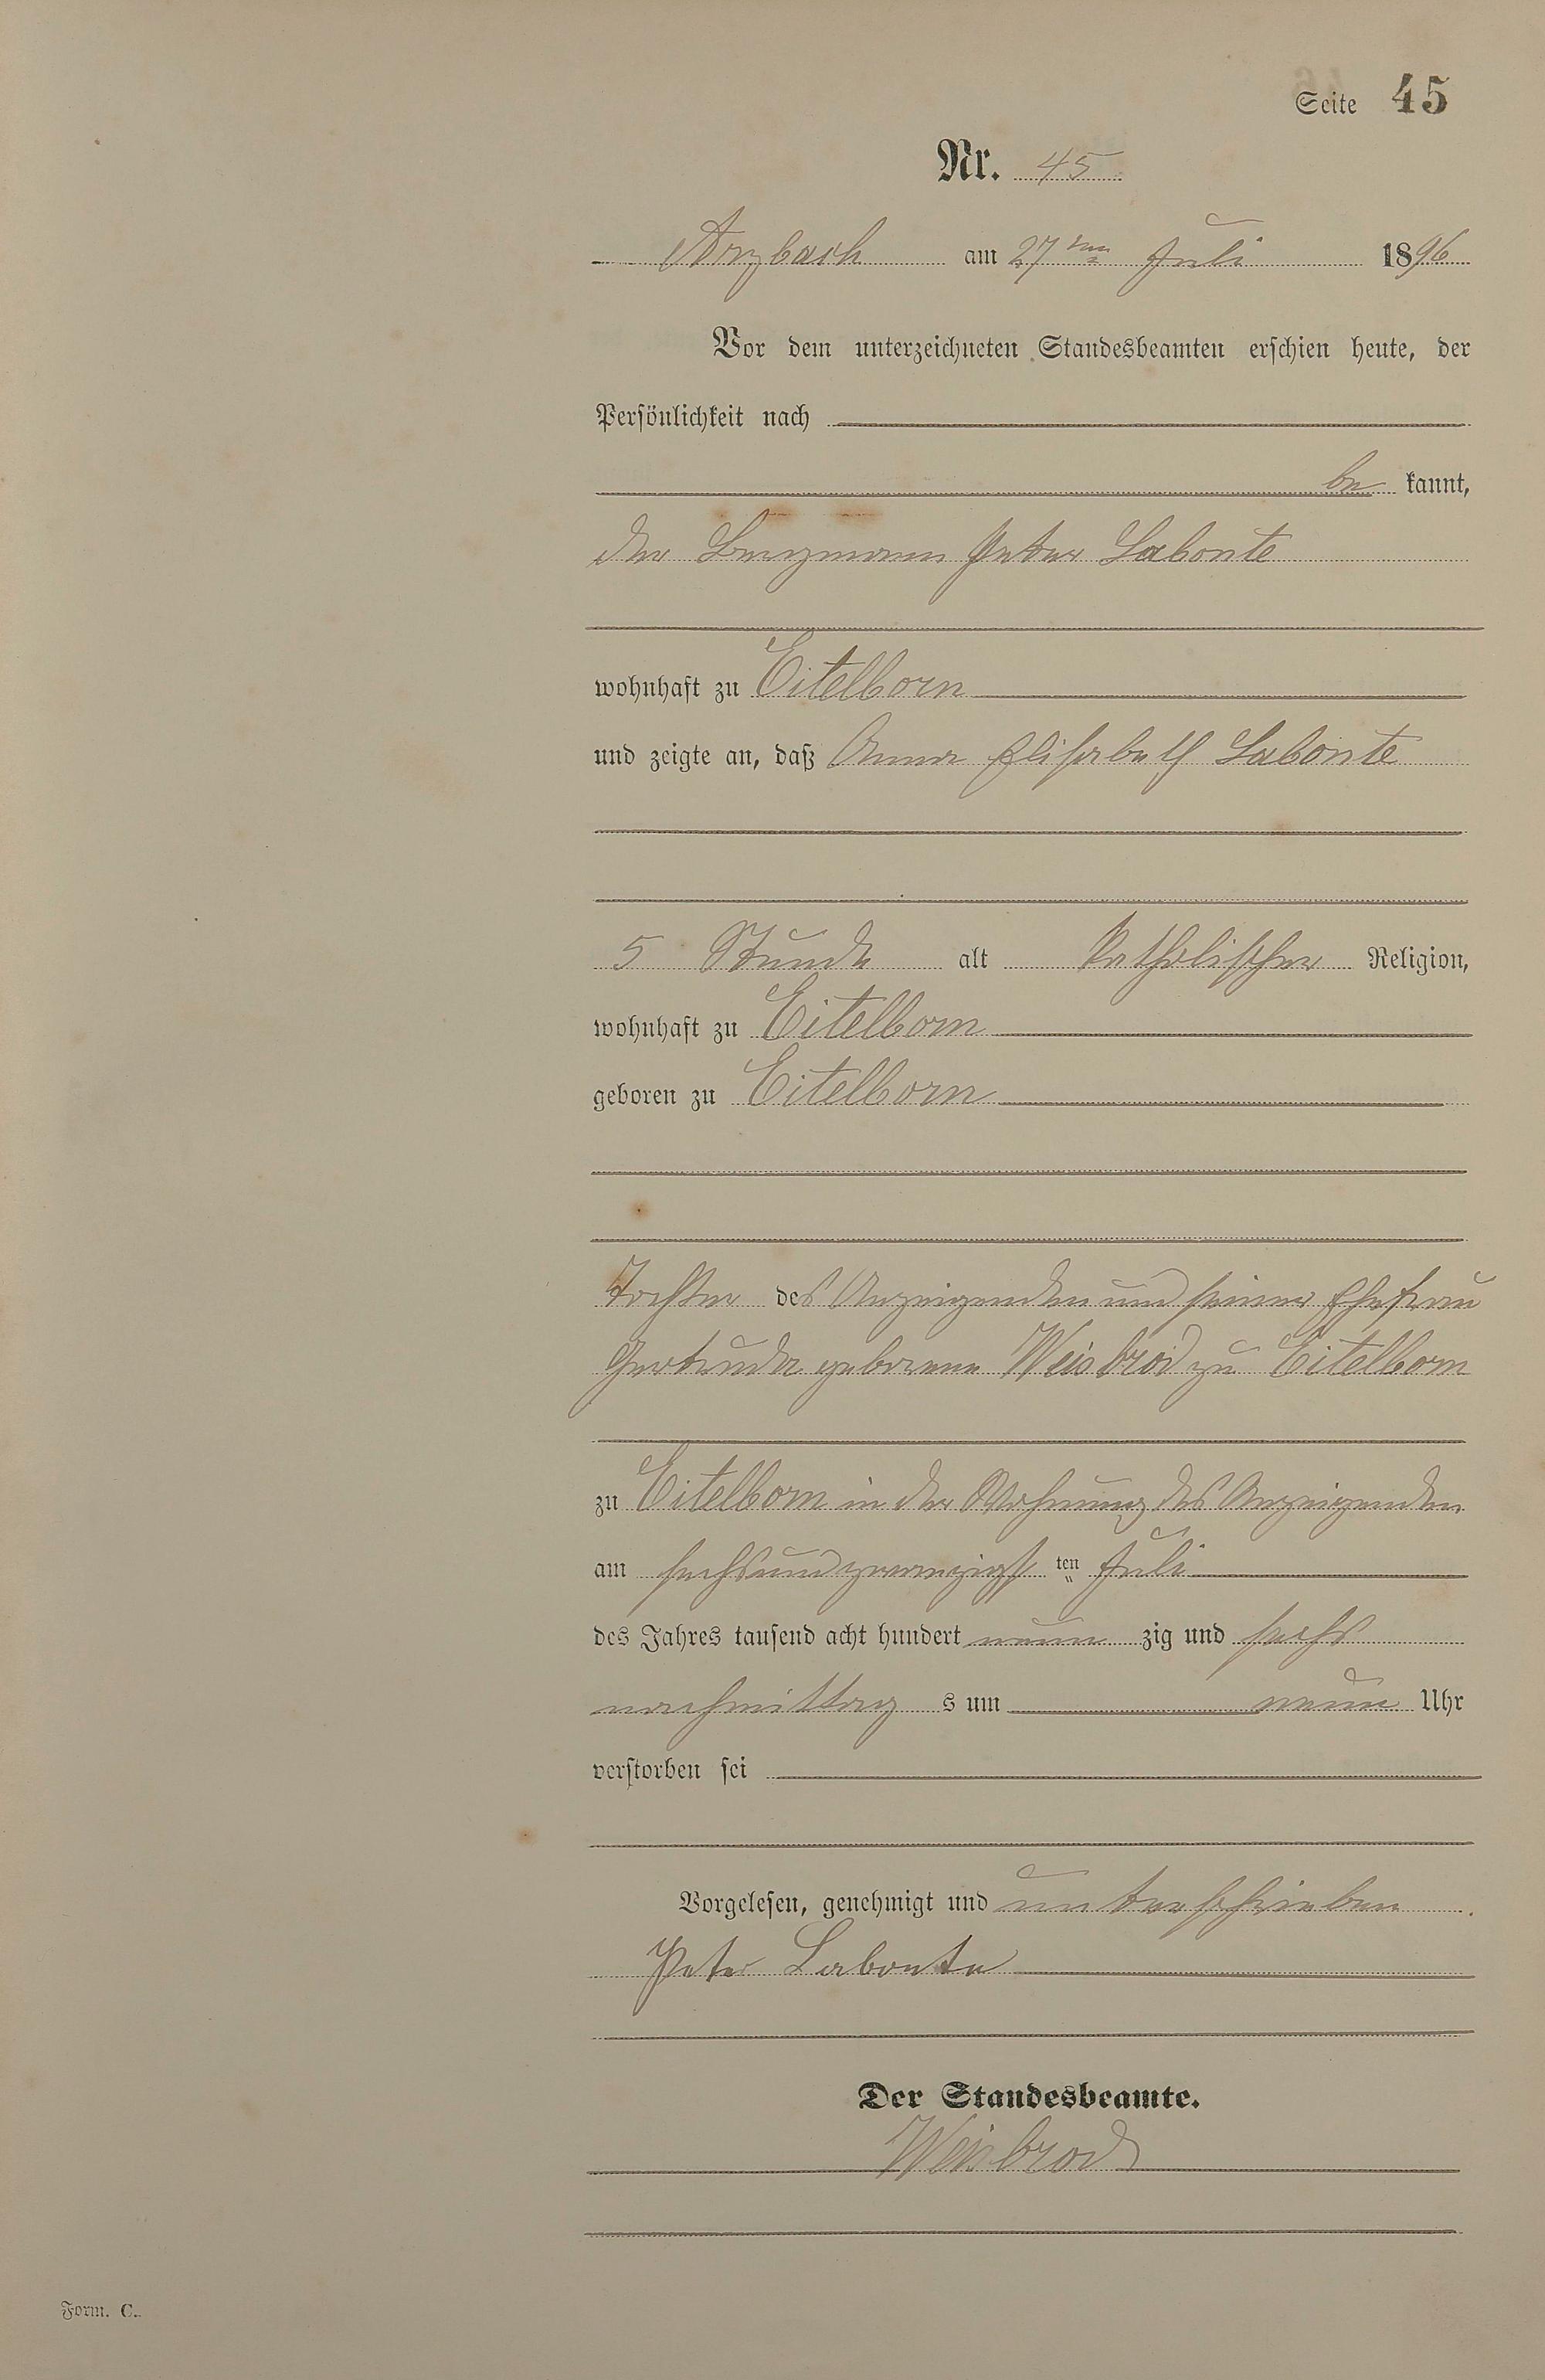 Seite 45
Nr. 45
Arzbach am 27ten Juli 1896
Vor dem unterzeichneten Standesbeamten erschien heute, der
Persönlichkeit nach
be kannt,
der Bergmann Peter Labonte
wohnhaft zu Eitelborn
und zeigte an, daß Anna Elisabeth Labonte
5 Stunde alt katholischer Religion,
wohnhaft zu Eitelborn
geboren zu Eitelborn
Tochter des Anzeigenden und seiner Ehefrau
Gertruda geborene Weisbrod zu Eitelborn
zu Eitelborn in der Wohnung des Anzeigenden
am sechsundzwanzigsten Juli
des Jahres tausend acht hundert neun zig und sechs
nachmittag s um neun Uhr
verstorben sei
Vorgelesen, genehmigt und unterschrieben
Peter Labonte
Der Standesbeamte.
Weisbrod
Form. C.